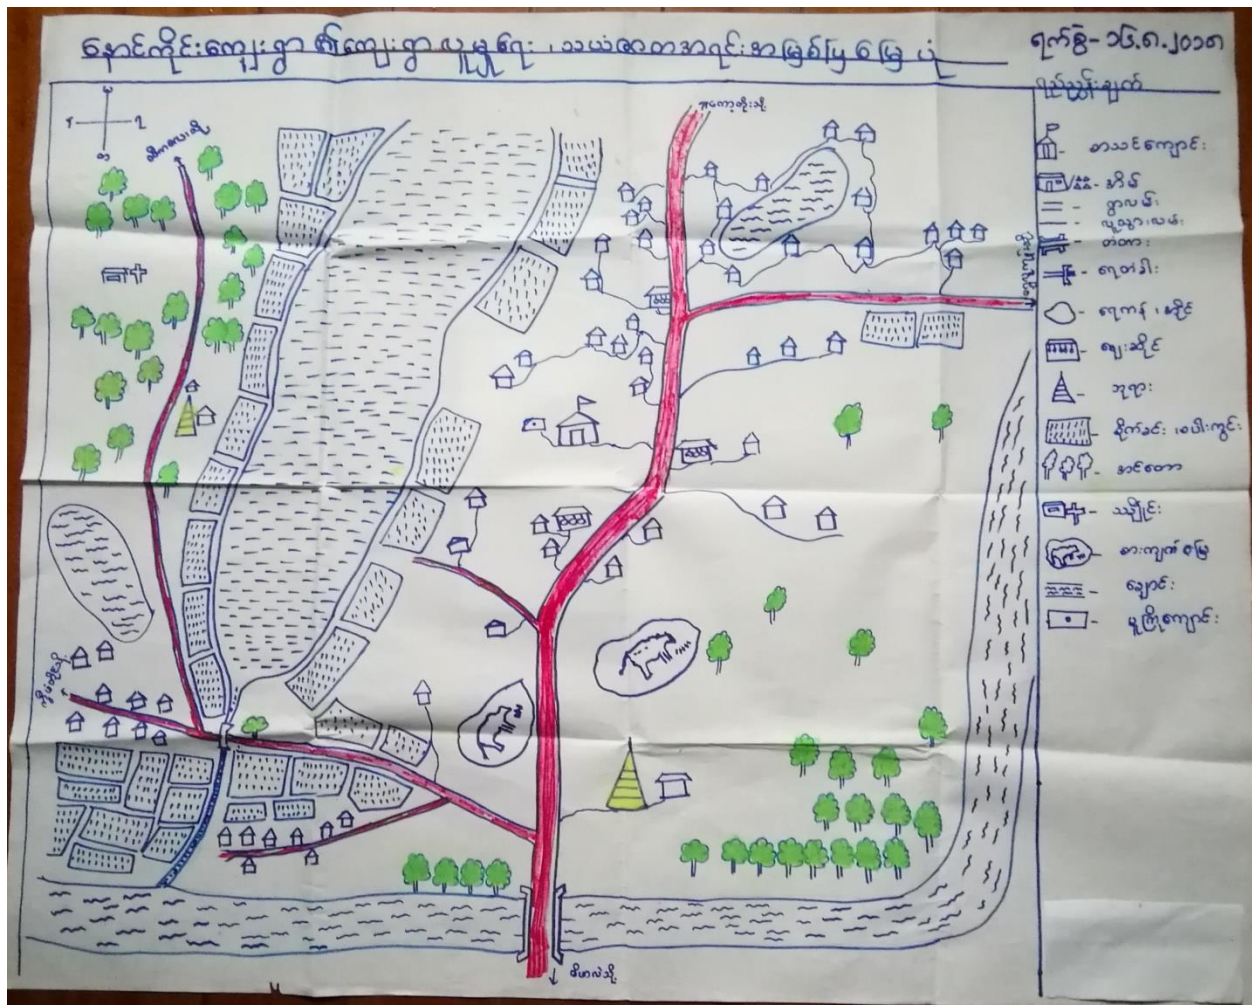 နောင်ကိုင်းကျေးရွာ ၏ ကျေးရွာလူမှုရေး ၊ သယံဇာတအရင်းအမြစ်ပြ မြေပုံ
ရက်စွဲ - ၁၆.၈.၂၀၁၈
ရည်ညွှန်းချက်
စာသင်ကျောင်း
အိမ်
ရွာလမ်း
လူသွားလမ်း
တံတား
ရေတံခါး
ရေကန် ၊ အိုင်
ဈေးဆိုင်
ဘုရား
စိုက်ခင်း ၊ စပါးကွင်း
အင်တော
သင်္ချိုင်း
စားကျက်မြေ
ချောင်း
မူကြိုကျောင်း